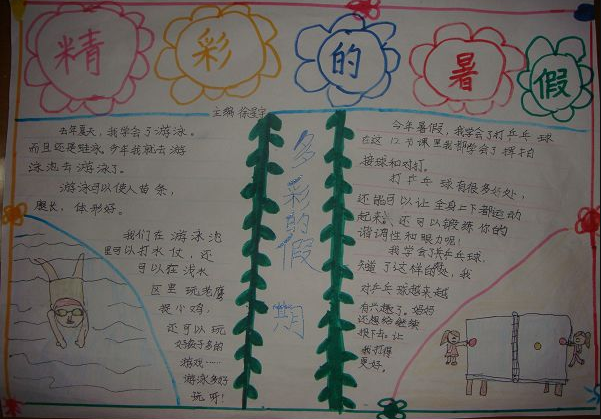 精彩的暑假
主编 徐
去年夏天,我学会了游泳。
而且还是蛙泳。今年我就去游
泳池去游泳了。
游泳可以使人苗条,
瘦长,体形好。
我们在游泳池
里可以打水仗,还
可以在浅水
区里玩老鹰
捉小鸡,
还可以玩
好多多的
游戏……
游泳多好
玩呀!
多彩的假期
今年暑假,我学会了打乒乓球
在这12节课里我都学会了挥拍
接球和对打。
打乒乓球有很多好处,
还能可以让全身上下都运动
起来,还可以锻炼你的
谐调性和眼力呢!
我学会了乒乓球
知道了这样的处,我
对乒乓球越来越
有兴趣了。妈妈
还想给继续
报下去。让
我打得
更好。